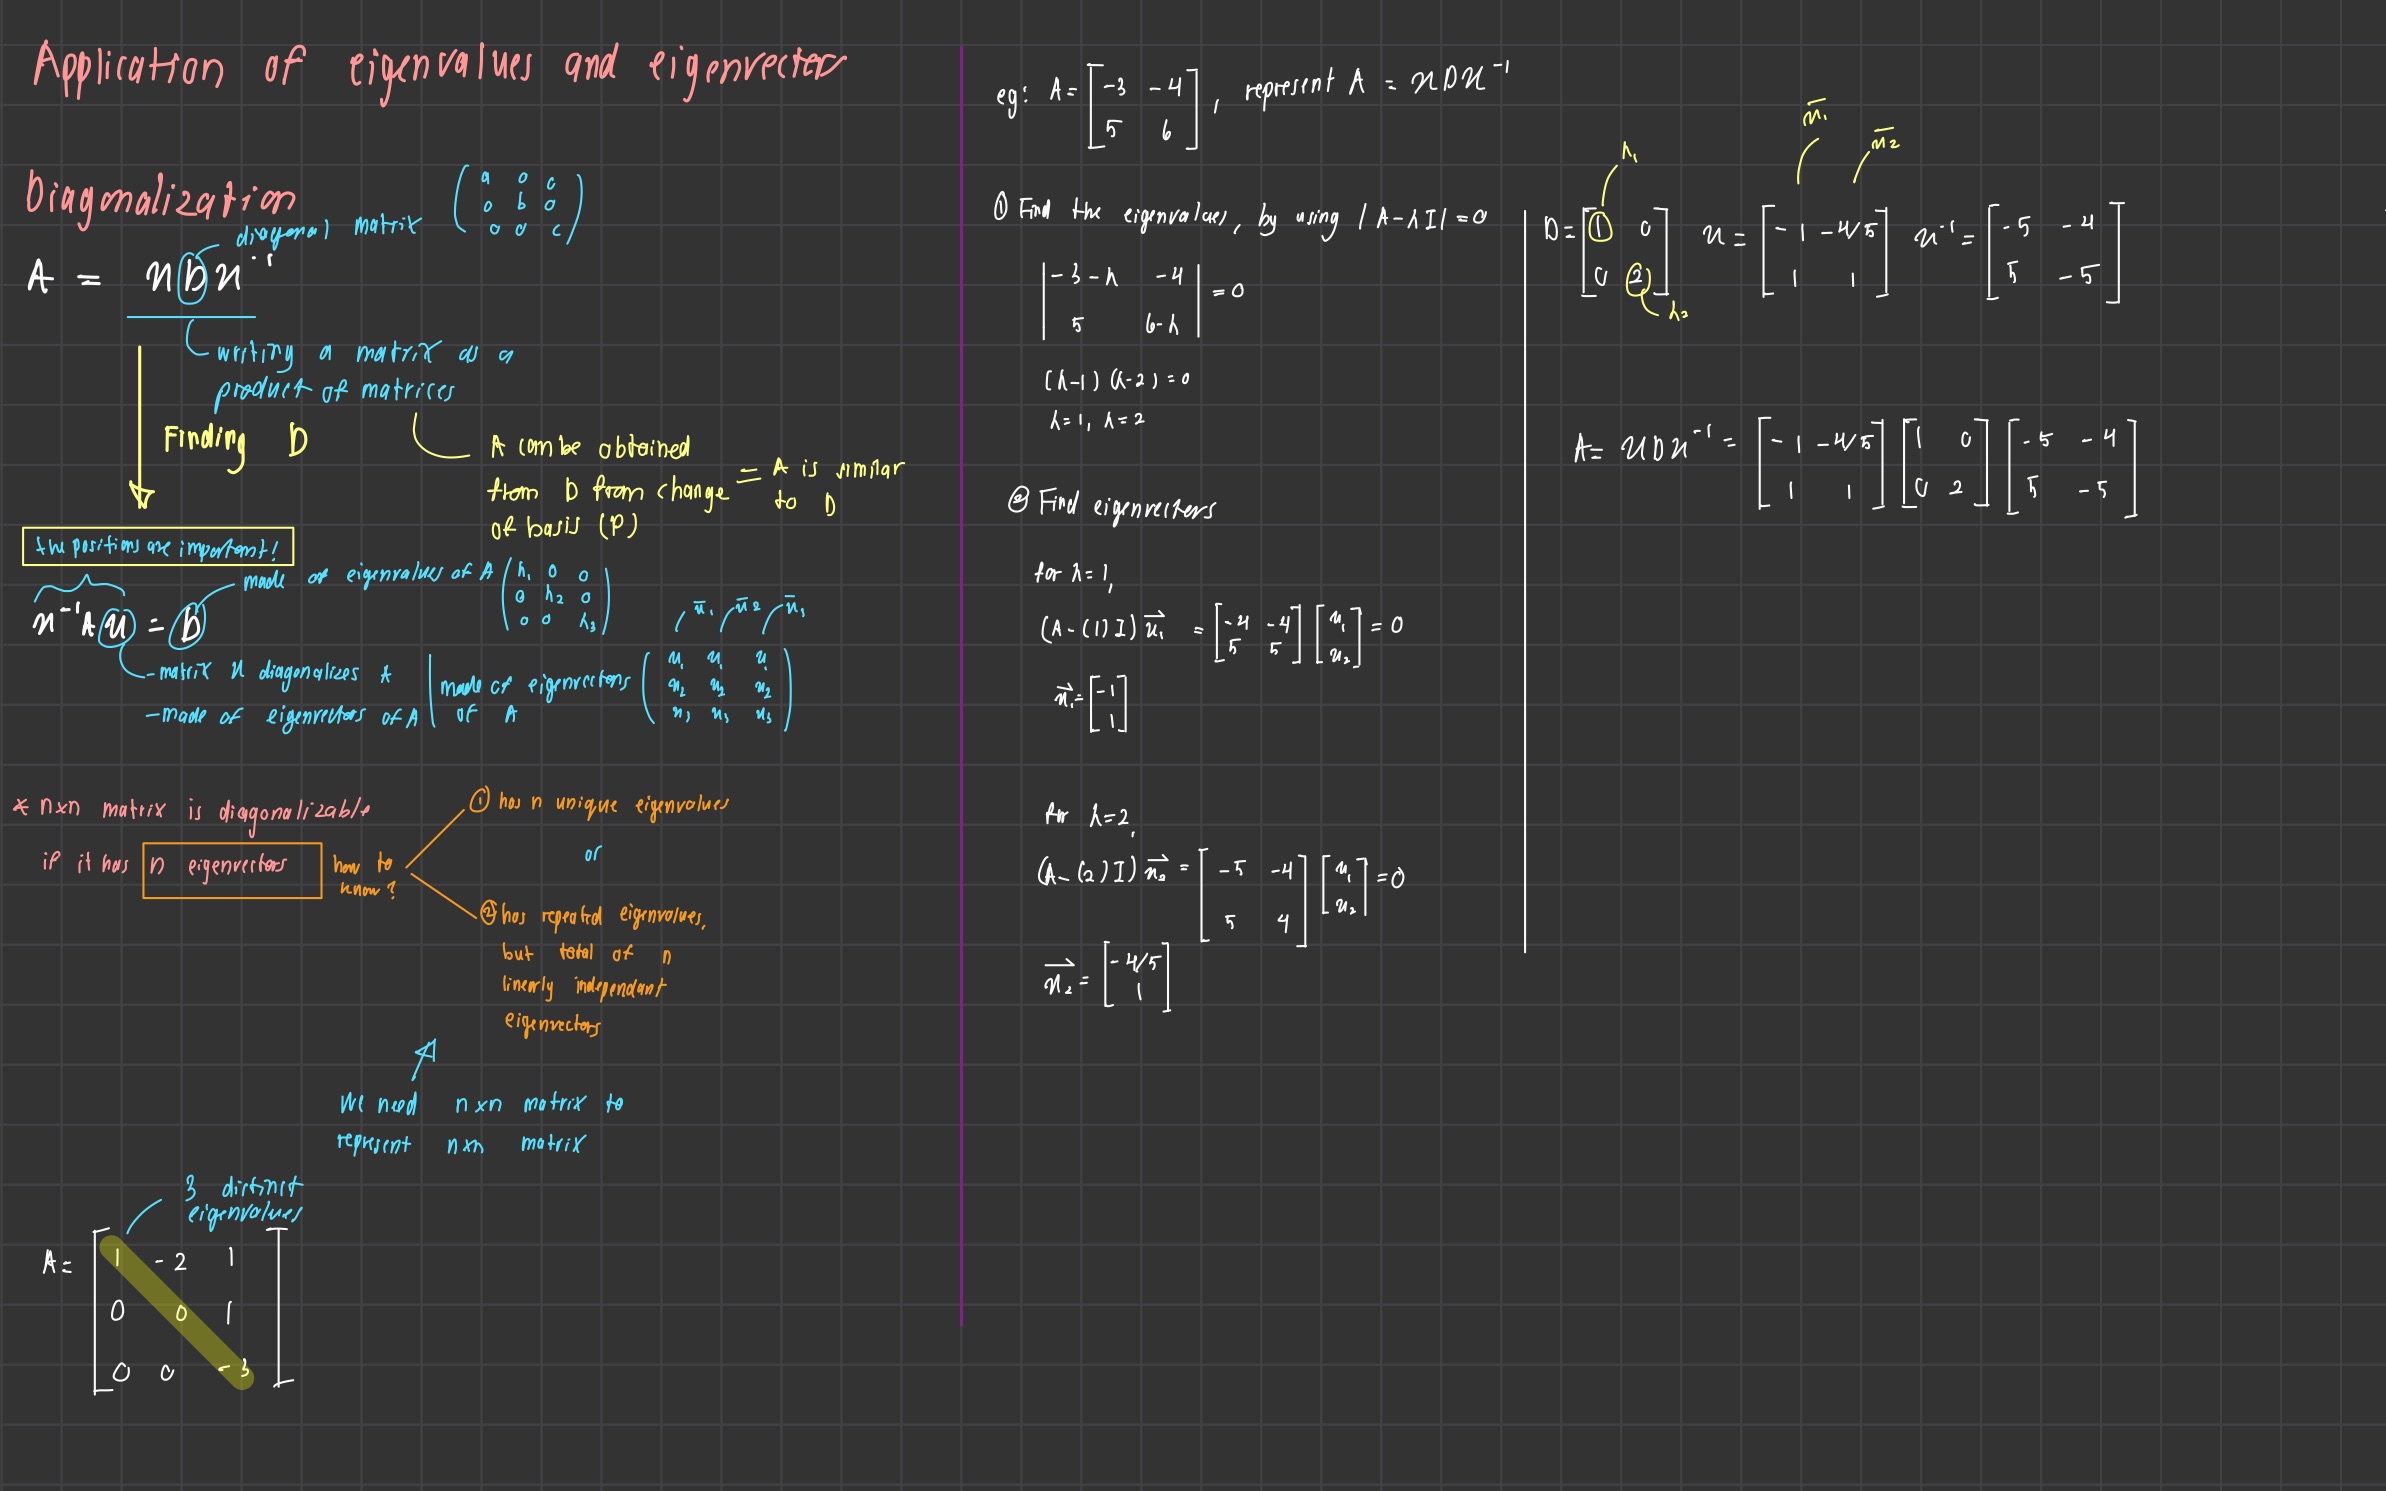 Application of eigenvalues and eigenvectors
Diagonalization
diagonal matrix
( a 0 0
0 b 0
0 0 c )
A = XDX⁻¹
writing a matrix as a
product of matrices
Finding D
A can be obtained
from D from change
of basis (P)
= A is similar
to D
the positions are important!
made of eigenvalues of A
( λ₁ 0 0
0 λ₂ 0
0 0 λ₃ )
x⁻¹Ax = D
- matrix x diagonalizes A
- made of eigenvectors of A
made of eigenvectors
of A
x̄₁ x̄₂ x̄₃
( x₁ x₁ x₁
x₂ x₂ x₂
x₃ x₃ x₃ )
* nxn matrix is diagonalizable
if it has n eigenvectors
how to
know?
① has n unique eigenvalues
or
② has repeated eigenvalues,
but total of n
linearly independant
eigenvectors
We need nxn matrix to
represent nxn matrix
3 distinct
eigenvalues
A = [ 1 -2 1
0 0 1
0 0 -3 ]
eg: A = [ -3 -4
5 6 ] , represent A = XDX⁻¹
① Find the eigenvalues, by using |A-λI| = 0
| -3-λ -4
5 6-λ | = 0
(λ-1)(λ-2) = 0
λ=1, λ=2
② Find eigenvectors
for λ=1,
(A-(1)I)x₁ = [ -4 -4
5 5 ] [ x₁
x₂ ] = 0
x₁ = [ -1
1 ]
for λ=2,
(A-(2)I)x₂ = [ -5 -4
5 4 ] [ x₁
x₂ ] = 0
x₂ = [ -4/5
1 ]
λ₁
x̄₁
x̄₂
D = [ 1 0
0 2 ]
λ₂
x = [ -1 -4/5
1 1 ]
x⁻¹ = [ -5 -4
5 -5 ]
A = XDX⁻¹ = [ -1 -4/5
1 1 ] [ 1 0
0 2 ] [ -5 -4
5 -5 ]